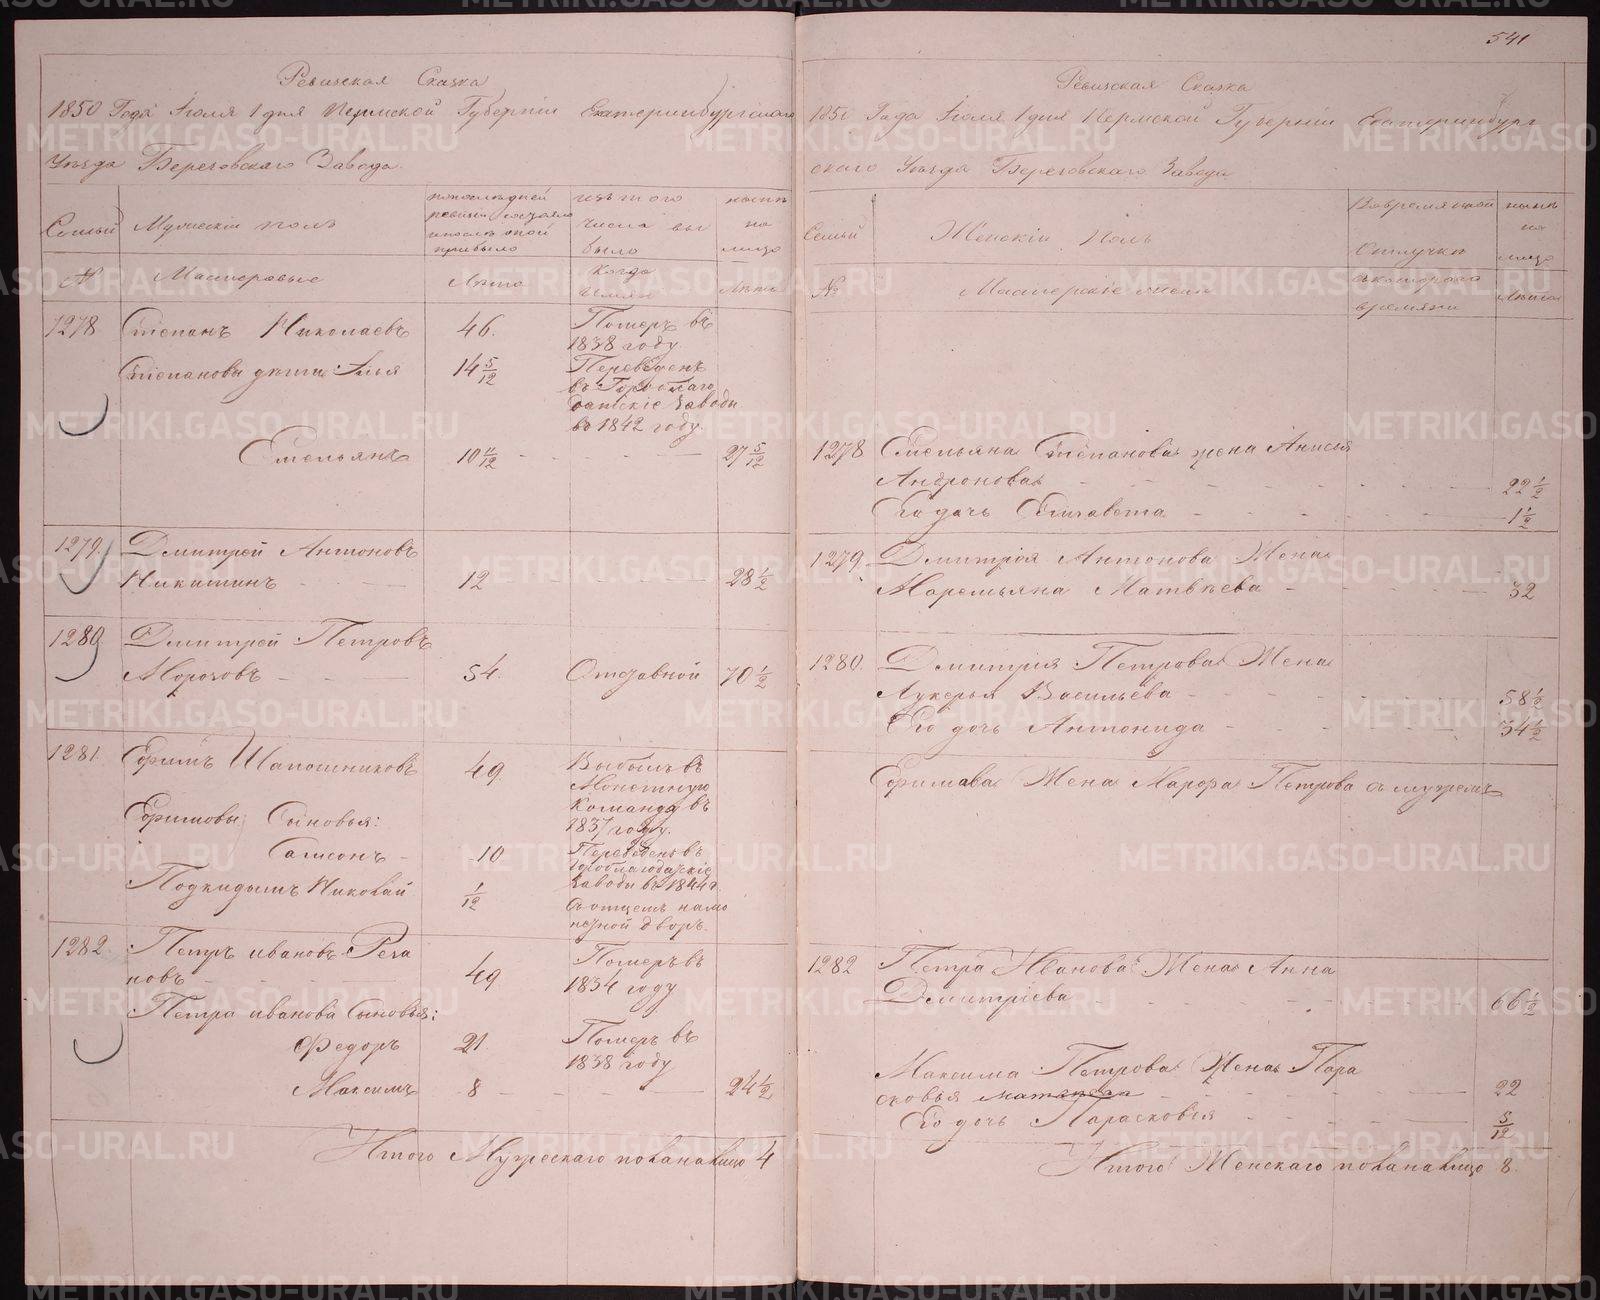 Ревизская Сказка
1850 Года Іюля 1 дня Пермской Губерніи Екатеринбургскаго
Уезда Березовскаго Завода.
Семьи
Мужескій полъ
по последней ревизіи состояло и после оной прибыло
изъ того числа выбыло
ныне на лицо
№
Мастеровые
Лета
Когда имянно
Лета
1278 Степанъ Николаевъ 46. Померъ въ
1838 году.
Степановы дети: Илья 14 5/12 Переведенъ
въ Гороблаго
датскіе заводы
въ 1842 году.
Емельянъ 10 11/12 27 5/12
1279. Дмитрей Антоновъ
Никитинъ 12 28 1/2
1280 Дмитрей Петровъ
Морозовъ 54. Отставной 70 1/2
1281. Ефимъ Шапошниковъ 49. Выбылъ въ
Монетную
Команду въ
1837 году.
Ефимовы Сыновья:
Самсонъ 10 Переведенъ въ
Гороблагодатскіе
заводы въ 1844 г.
Подкидышъ Николай 1/12 Съ отцемъ на мо
нетной дворъ.
1282. Петръ Ивановъ Реза
новъ 49 Померъ въ
1834 году
Петра Иванова Сыновья:
Федоръ 21. Померъ въ
1838 году
Максимъ 8 24 1/2
Итого Мужескаго пола на лицо 4
541
Ревизская Сказка
1850 Года Іюля 1 дня Пермской Губерніи Екатеринбург
скаго Уезда Березовскаго Завода
Семьи
Женскій Полъ
Во временной Отлучке
ныне на лицо
№
Мастерскіе жены
съ котораго времяни
Лета
1278 Емельяна Степанова жена Анисья
Андронова 22 1/2
Его дочь Елизавета 1 1/2
1279. Дмитрія Антонова Жена
Маремьяна Матвеева 32
1280. Дмитрія Петрова Жена
Лукерья Васильева 58 1/2
Его дочь Антонида 34 1/2
Ефимова Жена Марфа Петрова съ мужемъ
1282 Петра Иванова Жена Анна
Дмитріева 66 1/2
Максима Петрова Жена Пара
сковья 22
Его дочь Парасковія 5/12
Итого Женскаго пола на лицо 8.
METRIKI.GASO-URAL.RU